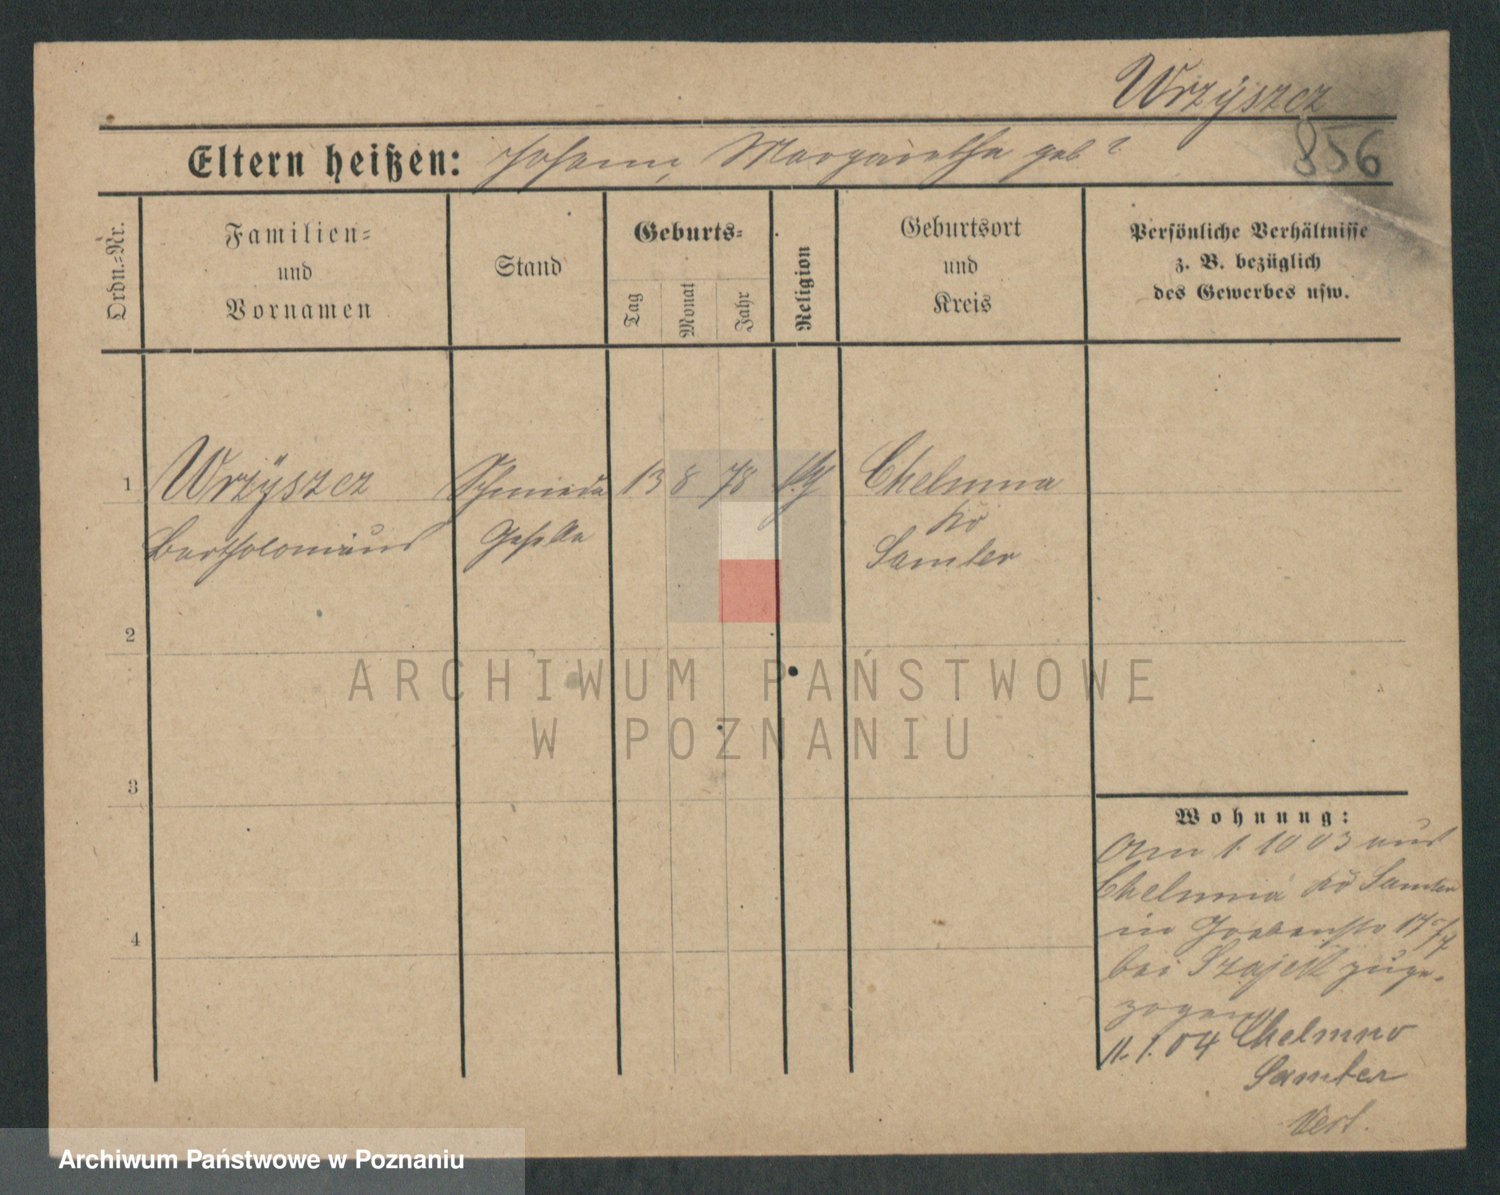 Wrzÿszcz
856
Eltern heißen: Johann, Margarethe geb ?
Ordn.-Nr.
Familien-
und
Vornamen
Stand
Geburts-
Tag
Monat
Jahr
Religion
Geburtsort
und
Kreis
Persönliche Verhältnisse
z. B. bezüglich
des Gewerbes usw.
1 Wrzÿszcz Schmiede 13 8 78 Chelmna
Kr
Bartholomäus Geselle Samter
2
3
4
Wohnung:
Am 1. 10 03 aus
Chelmna Kr Samter
in 17
bei zuge-
zogen
11. 1. 04 Chelmno
Samter
Verz.
ARCHIWUM PAŃSTWOWE
W POZNANIU
Archiwum Państwowe w Poznaniu